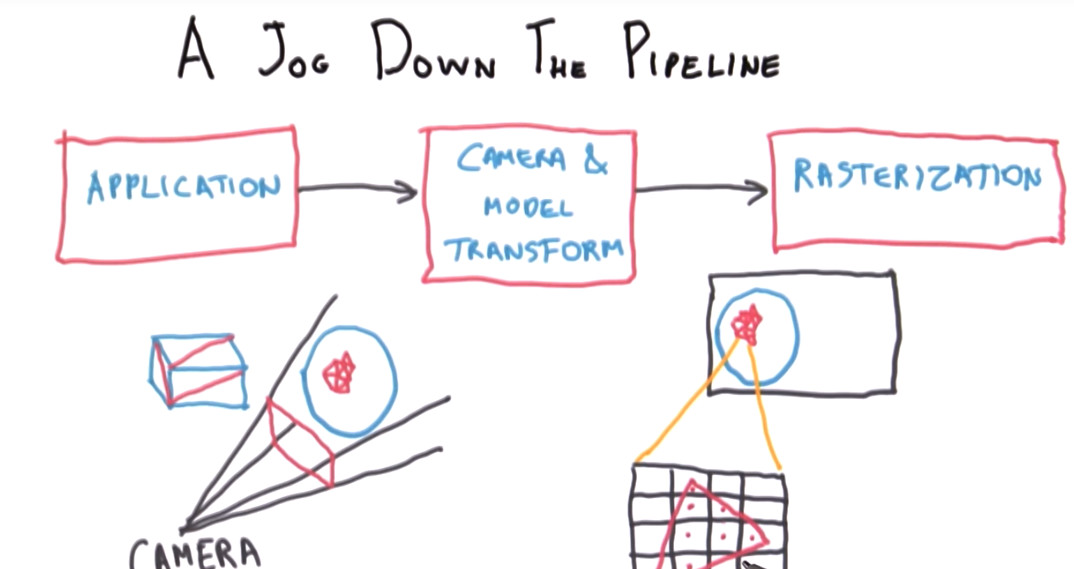 A JOG DOWN THE PIPELINE
APPLICATION
CAMERA &
MODEL
TRANSFORM
RASTERIZATION
CAMERA